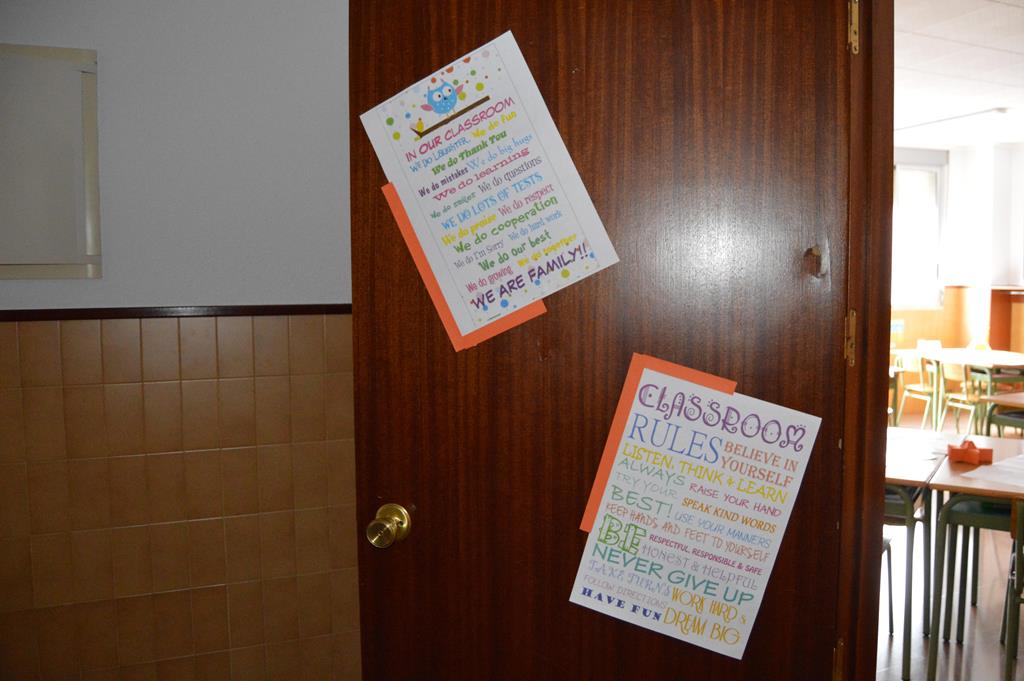 IN OUR CLASSROOM
WE DO LAUGHTER, We do fun
We do Thank You
We do mistakes We do big hugs
We do learning
We do smiles We do questions
WE DO LOTS OF TESTS
We do praise We do respect
We do cooperation
We do I'm Sorry We do hard work
We do our best
We do growing We do together
WE ARE FAMILY!!
CLASSROOM
RULES BELIEVE IN YOURSELF
LISTEN, THINK & LEARN
ALWAYS RAISE YOUR HAND
TRY YOUR BEST! SPEAK KIND WORDS
USE YOUR MANNERS
KEEP HANDS AND FEET TO YOURSELF
BE RESPECTFUL, RESPONSIBLE & SAFE
HONEST & HELPFUL
NEVER GIVE UP
TAKE TURNS WORK HARD &
FOLLOW DIRECTIONS
HAVE FUN DREAM BIG